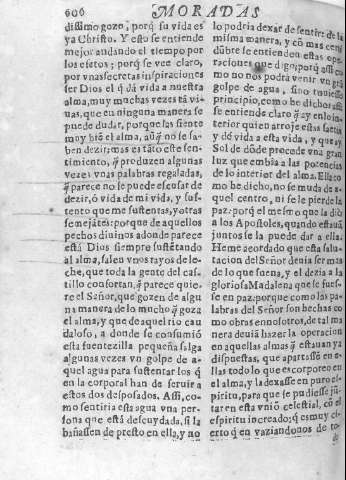 606
MORADAS
dissimo gozo, porq̃ su vida es
ya Christo. Y esto se entiende
mejor andando el tiempo por
los efetos; porq̃ se vee claro,
por vnas secretas inspiraciones
ser Dios el q̃ dá vida a nuestra
alma, muy muchas vezes tã vi-
uas, que en ninguna manera se
puede dudar, porque las siente
muy biẽ el alma, aũq̃ no se sa-
ben dezir: mas es tãto este sen-
timiento, q̃ produzen algunas
vezes vnas palabras regaladas,
q̃ parece no se puede escusar de
dezir, ó vida de mi vida, y sus-
tento que me sustentas, y otras
semejãtes: porque de aquellos
pechos diuinos adonde parece
está Dios siempre sustẽtando
al alma, salen vnos rayos de le-
che, que toda la gente del cas-
tillo confortan, q̃ parece quie-
re el Señor, que gozen de algu-
na manera de lo mucho q̃ goza
el alma, y que de aquel rio cau
daloso, a donde se consumió
esta fuentezilla pequeña salga
algunas vezes vn golpe de a-
quel agua para sustentar los q̃
en lo corporal han de seruir a
estos dos desposados. Assi, co-
mo sentiria esta agua vna per-
sona que está descuydada, si la
bañassen de presto en ella, y no
lo podria dexar de sentir: de la
misma manera, y cõ mas certi
dũbre se entienden estas ope-
raciones que digo; porq̃ assi co-
mo no nos podrá venir vn grã
golpe de agua, sino tuuiesse
principio, como he dicho: assi
se entiende claro q̃ ay en lo in-
terior quien arroje estas saetas
y dé vida a esta vida, y que ay
Sol de dõde procede vna gran
luz que embia a las potencias
de lo interior del alma. Ella co
mo he dicho, no se muda de a-
quel centro, ni se le pierde la
paz: porq̃ el mesmo que la dió
a los Apostoles, quando estauã
juntos se la puede dar a ella.
Heme acordado que esta salu-
tacion del Señor deuia ser mas
de lo que suena, y el dezia a la
gloriosa Madalena que se fues-
se en paz: porque como las pa-
labras del Señor son hechas co
mo obras en nosotros, de tal ma
nera deuiã hazer la operacion
en aquellas almas q̃ estauan ya
dispuestas, que apartasse en e-
llas todo lo que es corporeo en
el alma, y la dexasse en puro es-
piritu, para que se pudiesse jũ-
tar en esta vniõ celestial, cõ el
espiritu increado; q̃ es muy ci-
erto q̃ en vaziandonos de to-